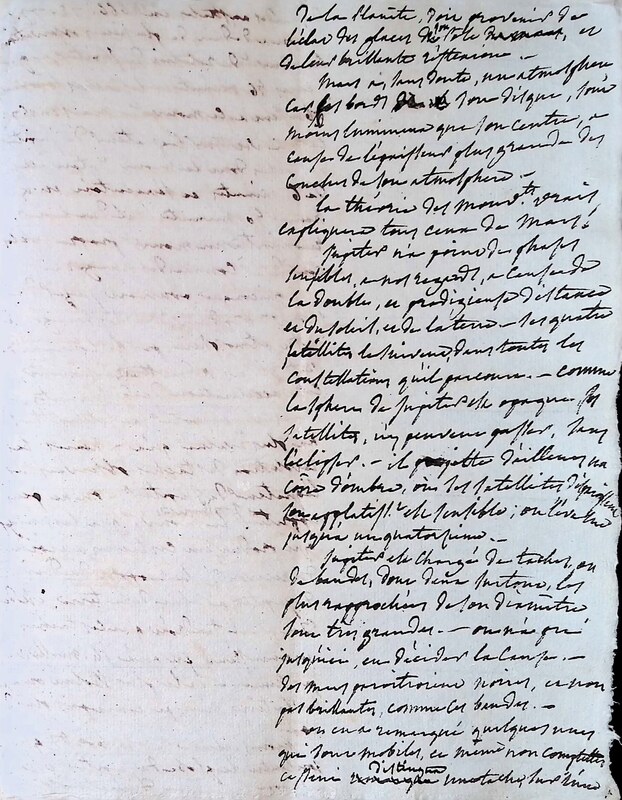 de la Planète, doit provenir de
l'éclat des glaces de
de leur brillante réflexion. —
Mars a, sans doute, une atmosphère
car les bords de son disque, sont
moins lumineux que son centre, a
cause de l'épaisseur plus grande des
couches de son atmosphère —
la théorie des mouv.ts vrais
expliquera tous ceux de Mars.
Jupiter n'a point de phases
sensibles, a nos regards, a cause de
la double, et prodigieuse distance
et du soleil, et de la terre — ses quatre
satellites le suivent dans toutes les
constellations qu'il parcourt. — comme
la sphere de Jupiter est opaque, ses
satellites, n'y peuvent passer, sans
s'éclipser. — il projette d'ailleurs un
cone d'ombre, où ses satellites disparoissent
son applatiss.t est sensible ; on l'évalue
jusqu'a un quatorzieme. —
Jupiter est chargé de taches, ou
de bandes, dont deux surtout, les
plus rapprochées de son diamètre
sont très grandes. — on n'a pu
jusqu'ici, en décider la cause. —
des mers paroitroient noires, et non
pas brillantes, comme ces bandes. —
on en a remarqué quelques unes
qui sont mobiles, et même non complettes
distingua
une tache, sur